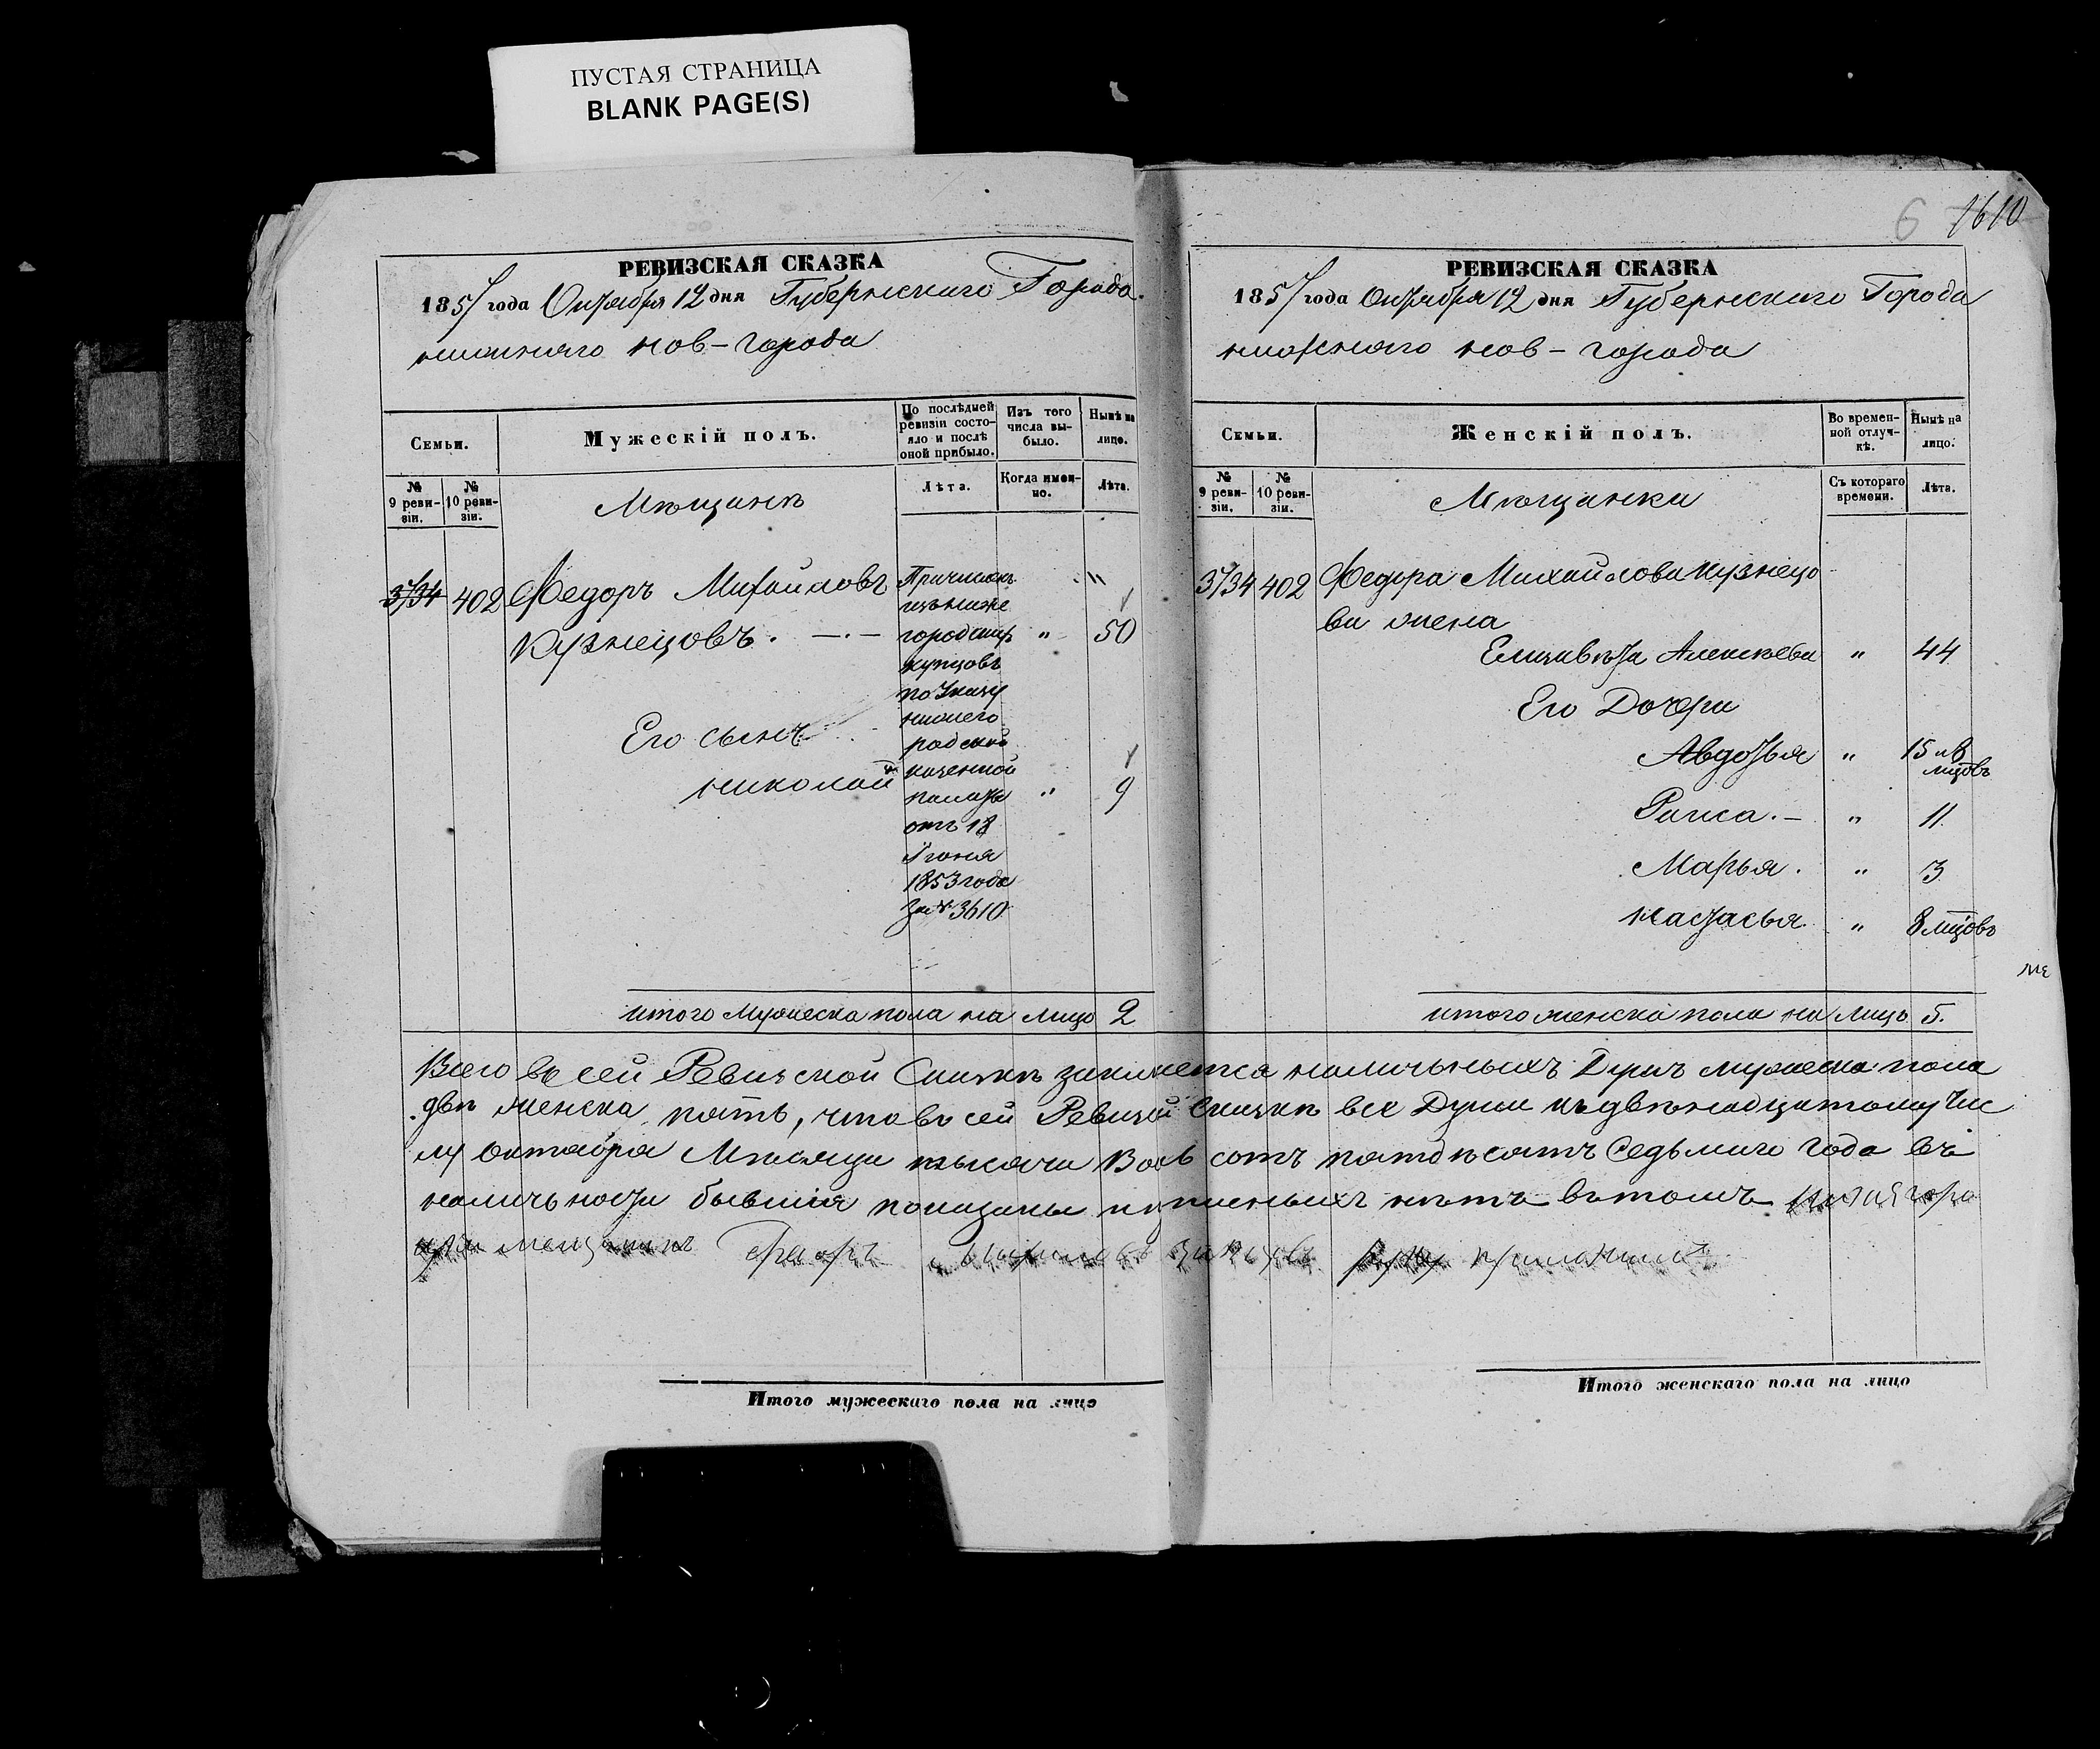 ПУСТАЯ СТРАНИЦА
BLANK PAGE(S)
РЕВИЗСКАЯ СКАЗКА
1857 года Октября 12 дня Губернскаго Города
нижняго нов-города
Семьи.
Мужескій полъ.
По послѣдней ревизіи состояло и послѣ оной прибыло.
Изъ того числа выбыло.
Нынѣ на лицо.
№ 9 ревизіи.
№ 10 ревизіи.
Мѣщанъ
Лѣта.
Когда именно.
Лѣта.
3734 402 Федоръ Михайловъ
Кузнецовъ. " 50
Причислен
изъ ниже
городских
купцовъ
по Указу
нижего
родской
казенной
палаты
отъ 18
Іюня
1853 года
за № 3610
Его сынъ
николай " 9
итого Мужеска пола на лицо 2
6 1610
РЕВИЗСКАЯ СКАЗКА
1857 года Октября 12 дня Губернскаго Города
нижняго нов-города
Семьи.
Женскій полъ.
Во временной отлучкѣ.
Нынѣ на лицо.
№ 9 ревизіи.
№ 10 ревизіи.
Мѣщанки
Съ котораго времени.
Лѣта.
3734 402 Федора Михайлова кузнецо
ва жена
Елизавѣта Алексѣева " 44
Его Дочери
Авдотья " 15
Раиса. - " 11
Марья. " 3
настасья. " 8 мцовъ
итого женска пола на лицо 5.
Всего въ сей Ревизской Сказкѣ наличныхъ Душъ мужеска пола
двѣ женска пять, что въ сей Ревизкой Сказкѣ все Души къ двѣнадцатому Чис
лу октября Мѣсяца тысячи Вось сотъ пятдѣсятъ Седьмаго года въ
наличьности бывшія показаны нѣтъ въ томъ
мещанинъ приложилъ
Итого мужескаго пола на лицо
Итого женскаго пола на лицо